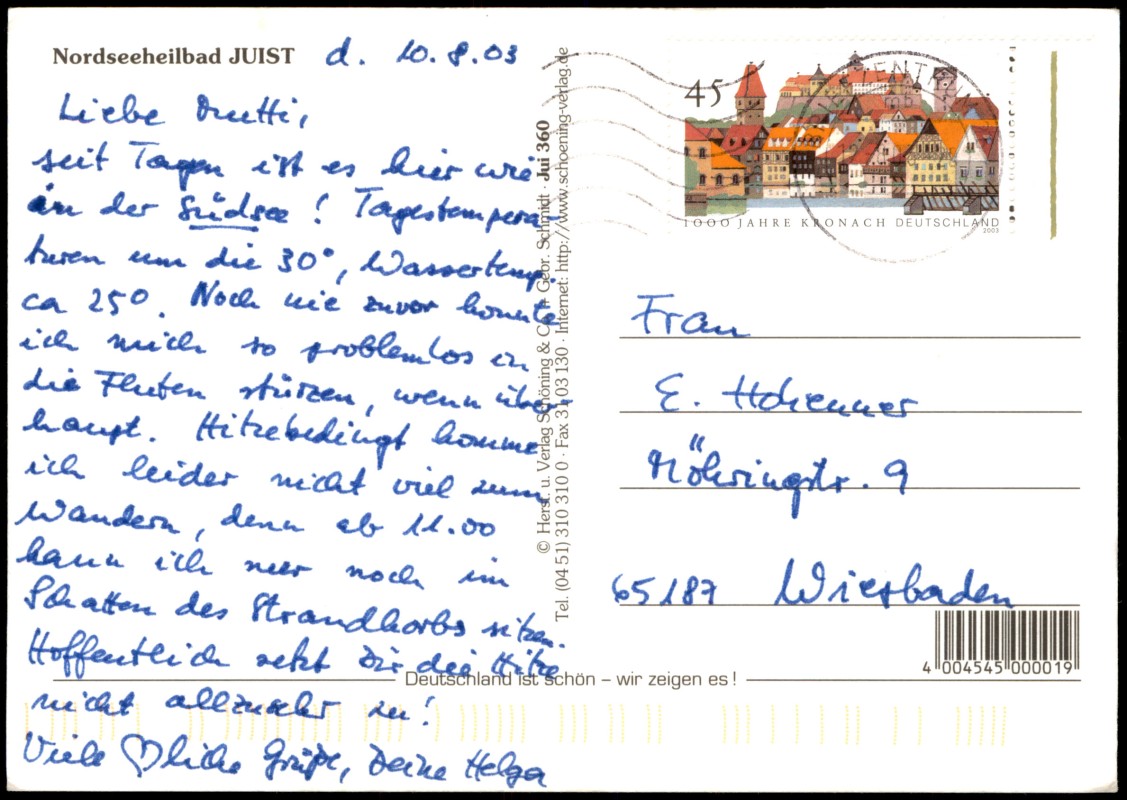 Nordseeheilbad JUIST d. 10.8.03
Liebe Mutti,
seit Tagen ist es hier wie
in der Südsee! Tagestempera-
turen um die 30°, Wassertemp.
ca 25°. Noch nie zuvor konnte
ich mich so problemlos in
die Fluten stürzen, wenn über-
haupt. Hitzebedingt komme
ich leider nicht viel zum
Wandern, denn ab 11.00
kann ich nur noch im
Schatten des Strandkorbs sitzen.
Hoffentlich setzt Dir die Hitze
nicht allzusehr zu!
Viele ♡liche Grüße, Deine Helga
© Herst. u. Verlag Schöning & Co + Gebr. Schmidt · Jui 360
Tel. (04 51) 310 310 0 · Fax 31 03 130 · Internet: http://www.schoening-verlag.de
45
1000 JAHRE KRONACH DEUTSCHLAND
2003
Frau
E.
Möhringstr. 9
65187 Wiesbaden
4 004545 000019
Deutschland ist schön – wir zeigen es!